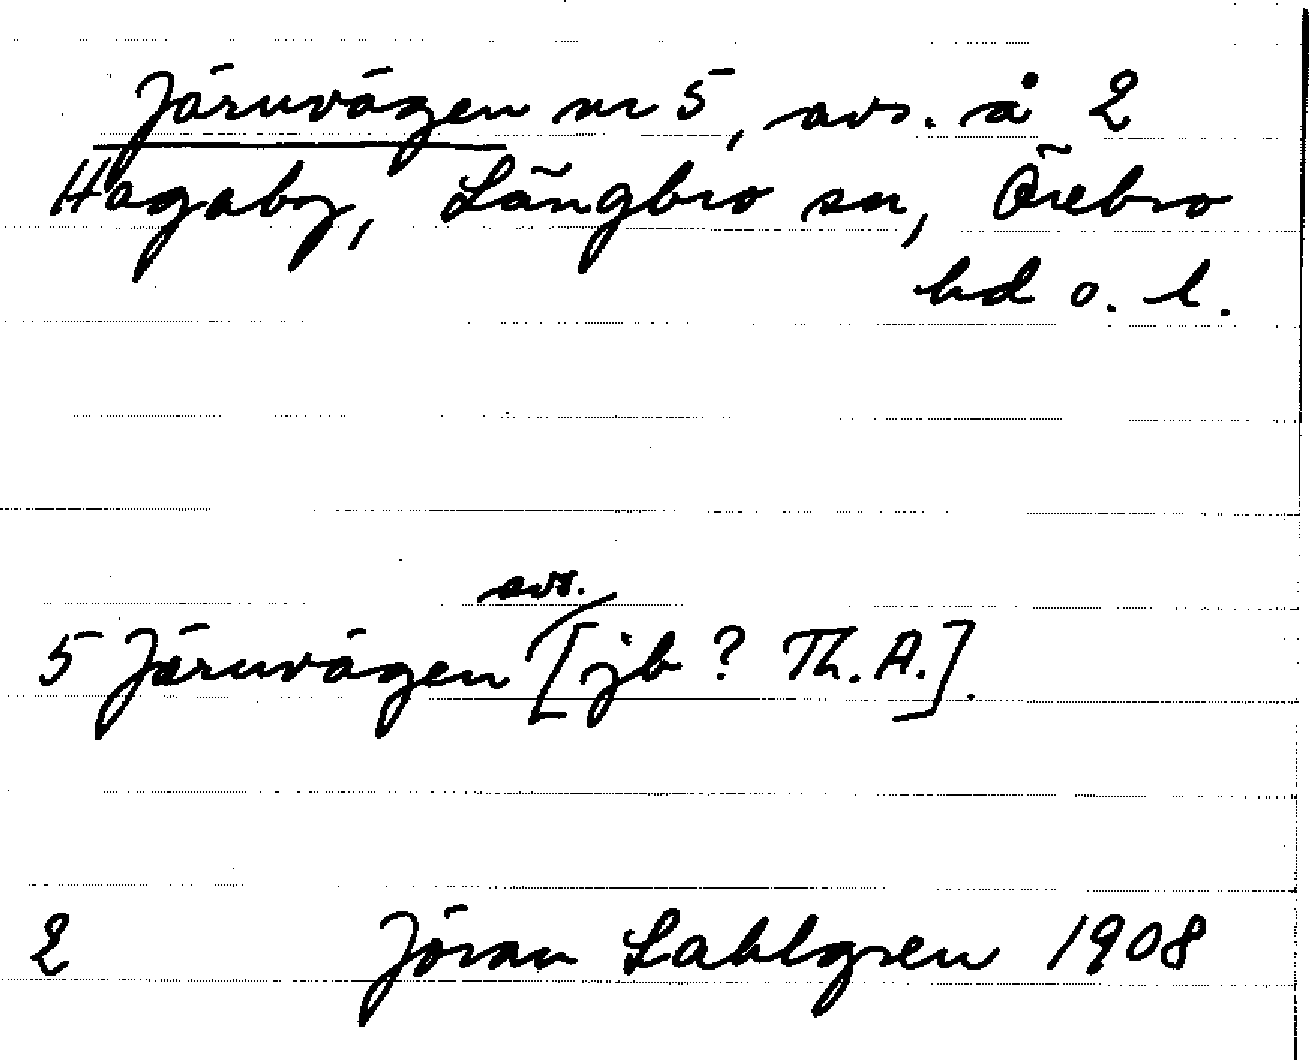 Järnvägen nr 5, avs. å 2
Hagaby, Längbro sn, Örebro
hd o. l.
avs.
5 Järnvägen [jb ? Th. A.].
2 Jöran Sahlgren 1908